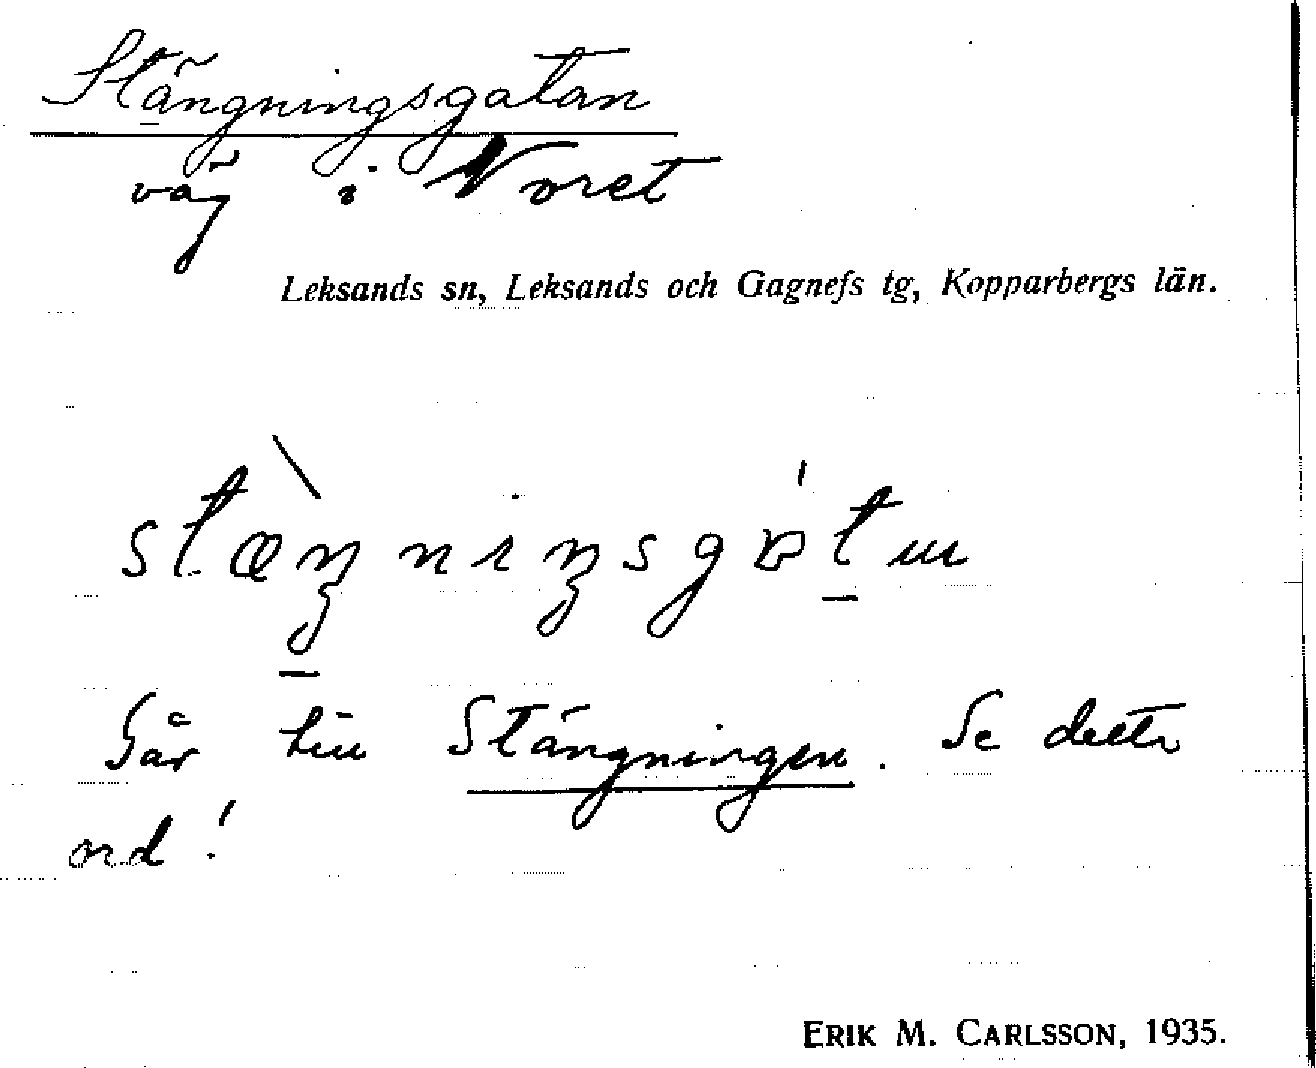 Stängningsgatan
väg i Noret
Leksands sn, Leksands och Gagnefs tg, Kopparbergs län.
Går till Stängningen. Se detta
ord!
ERIK M. CARLSSON, 1935.